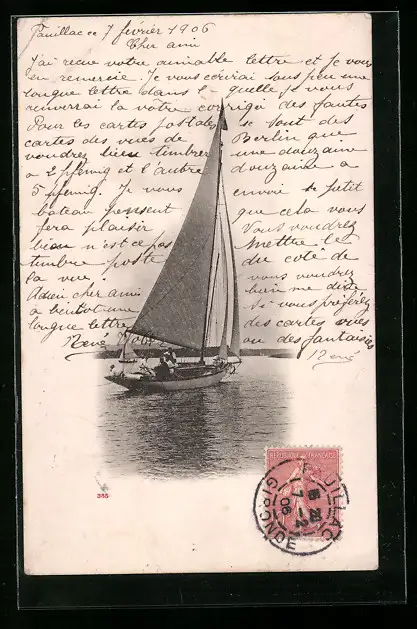 Pauillac ce 7 février 1906
Cher ami
J'ai reçue votre aimable lettre et je vous
en remercie. Je vous écrirai sous peu une
longue lettre dans laquelle je vous
renverrai la votre corrigé des fautes
Pour les cartes postales se sont des
cartes des vues de Berlin que
voudrez bien timbrer une douzaine
a 2 pfennig et l'autre douzaine a
5 pfennig. Je vous envoie ce petit
bateau pensent que cela vous
fera plaisir Vous voudrez
bien n'est ce pas mettre le
timbre poste du coté de
la vue. vous voudrez
Adieu cher ami bien me dire
a bientôt une Si vous préférez
longue lettre des cartes vues
René ou des fantaisies
René
385
REPUBLIQUE FRANÇAISE
PAUILLAC
7 -2
06
GIRONDE